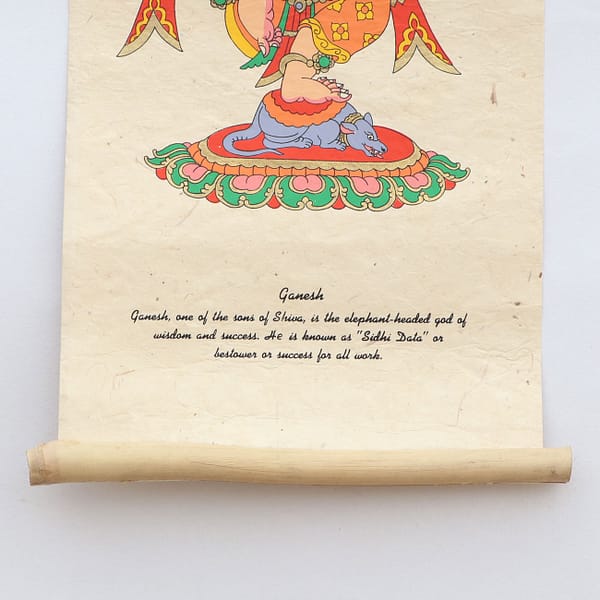 Ganesh
Ganesh, one of the sons of Shiva, is the elephant-headed god of
wisdom and success. He is known as "Sidhi Data" or
bestower or success for all work.